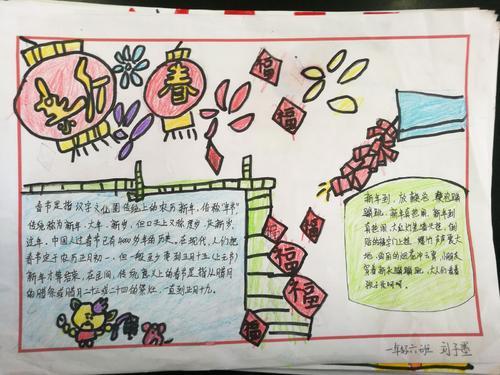 新
春
福
福
福
福
福
福
春节是指汉字文化圈传统上的农历新年,俗称"年节"
传统称为新年、大年、新岁,但口头上又称度岁、庆新岁、
过年,中国人过春节已有4000多年的历史。在现代,人们把
春节定于农历正月初一,但一般至少要到正月十五(上元节)
新年才算结束,在民间,传统意义上的春节是指从腊月
的腊祭或腊月二十三或二十四的祭灶,一直到正月十九。
新年到,放鞭炮,
蹦蹦跳,新年真热闹,新年到
真热闹,大红灯笼
陪的福字门上挂,爆竹声声震大
地,
穿着新衣蹦蹦跳,大人们看着
孩子
一年级六班 刘子墨